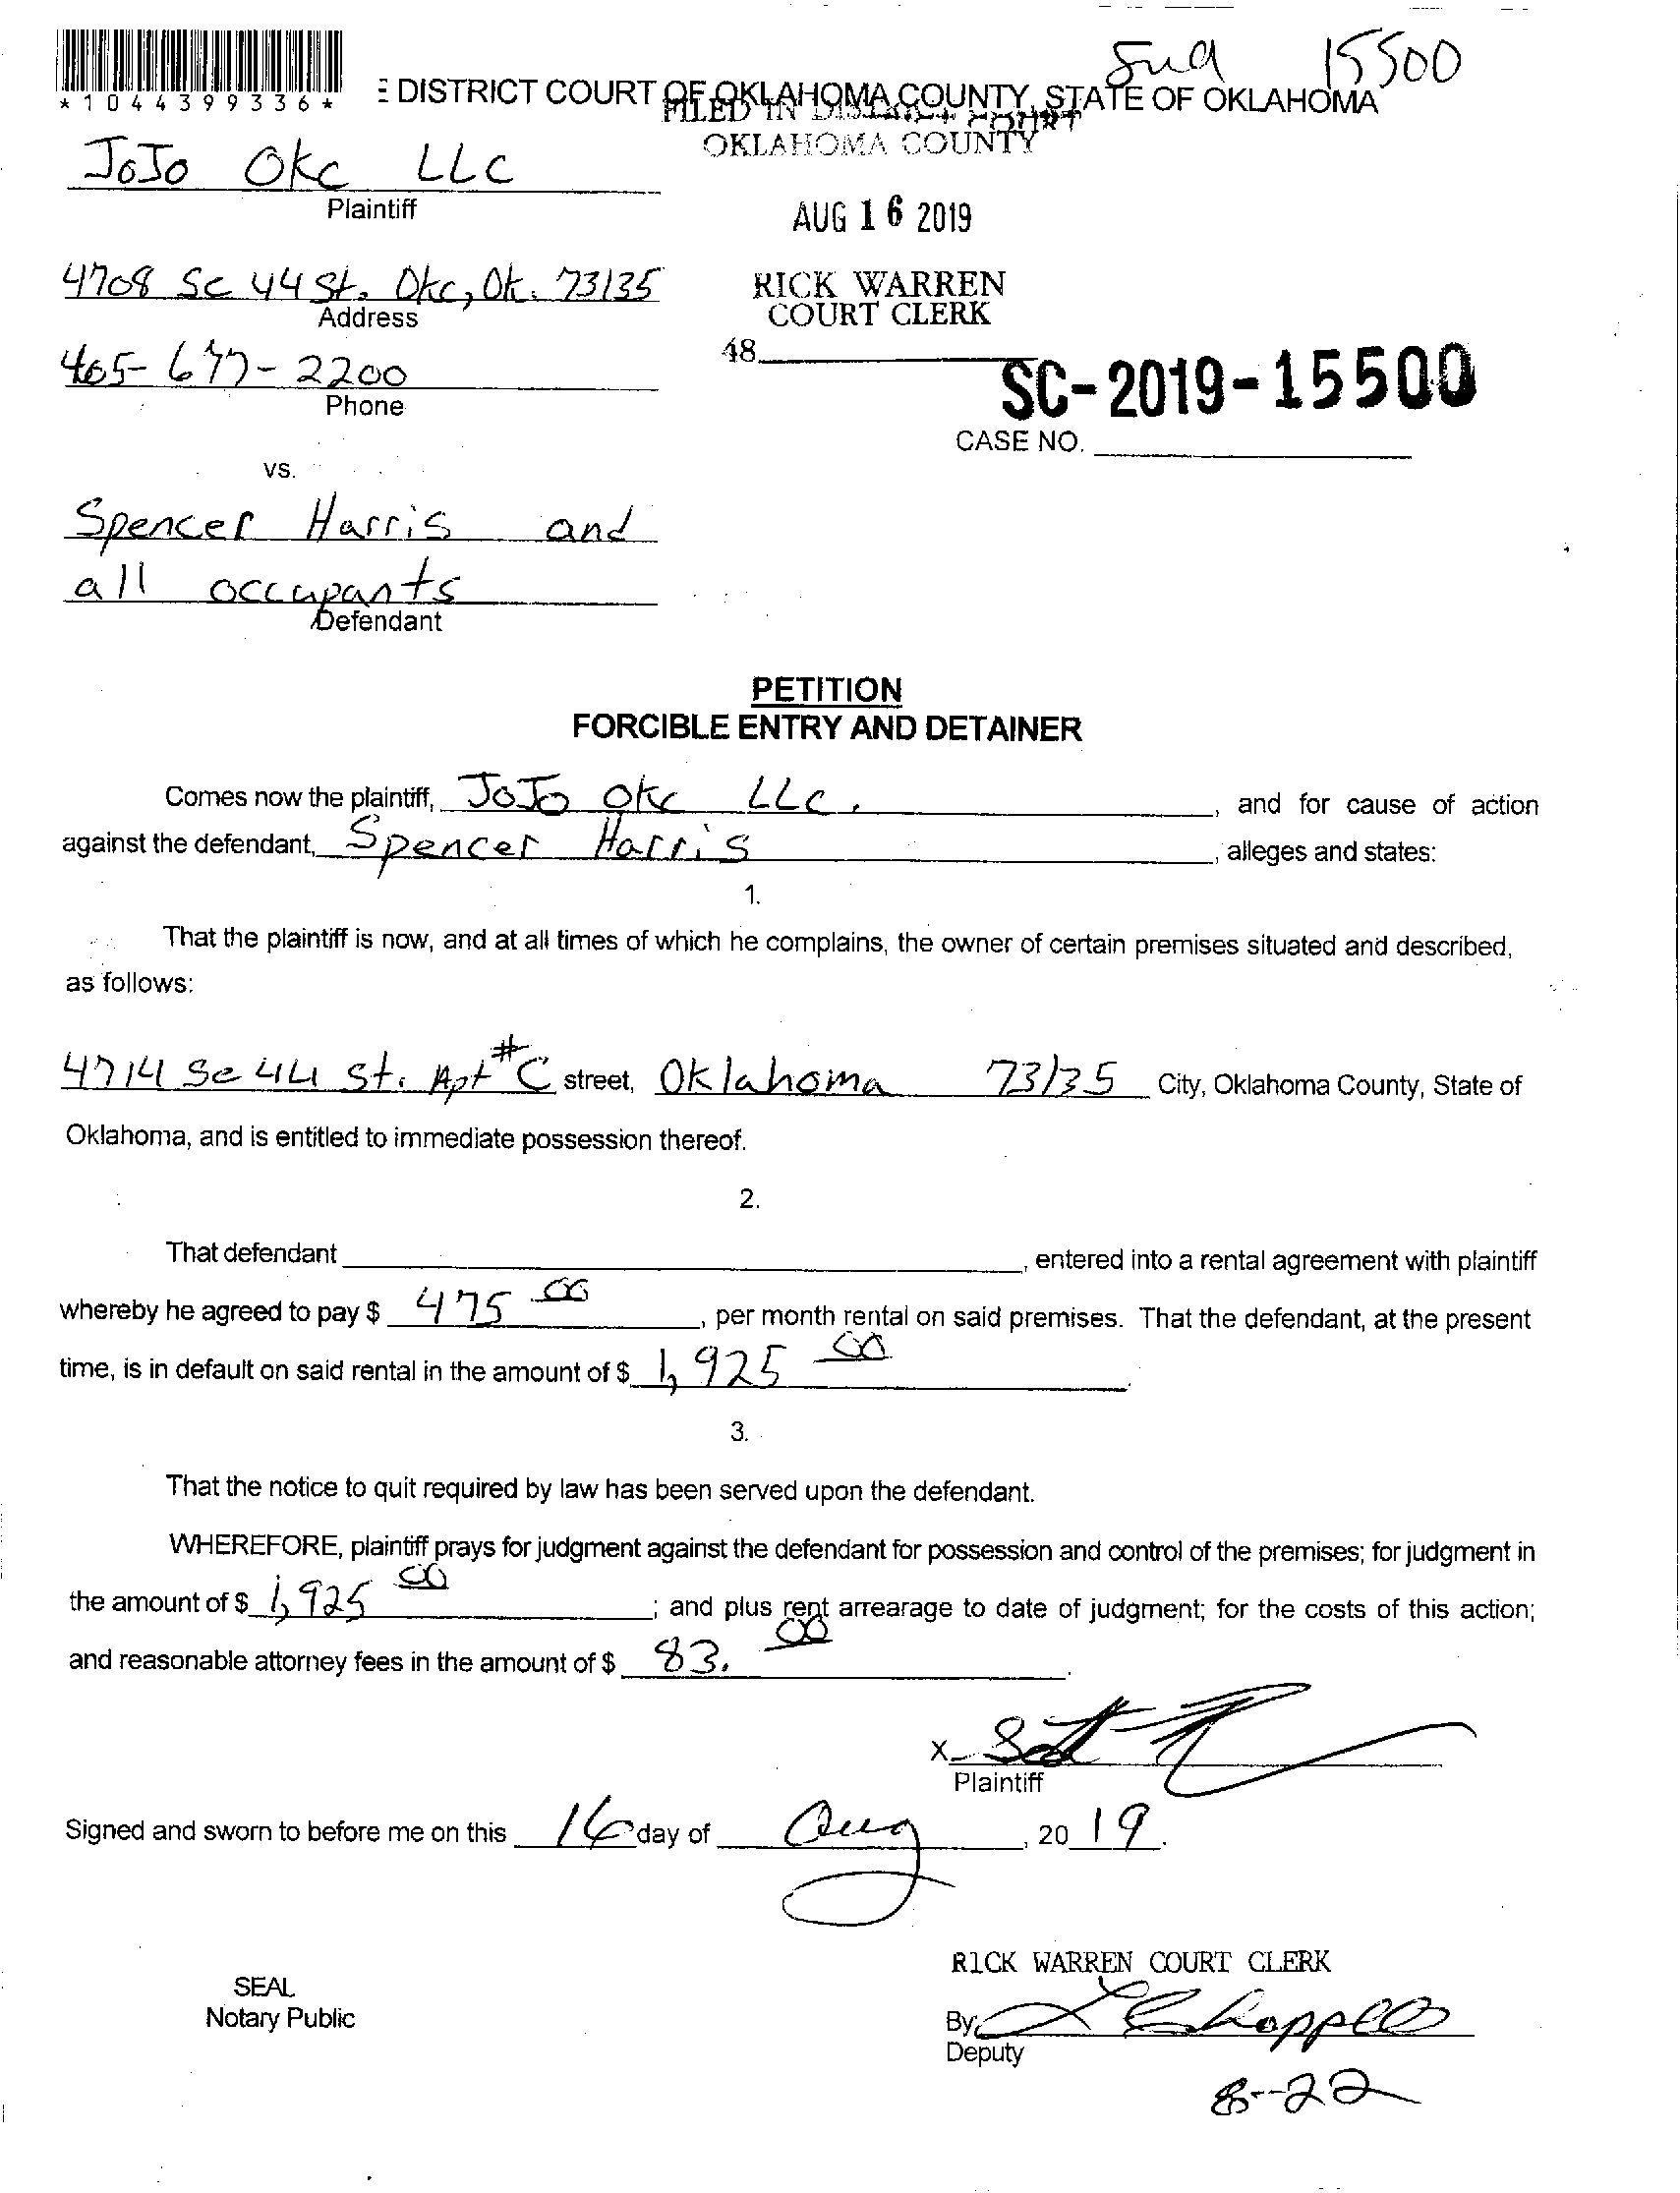 15500
*1044399336*
E DISTRICT COURT OF OKLAHOMA COUNTY, STATE OF OKLAHOMA
FILED IN DISTRICT COURT
OKLAHOMA COUNTY
JoJo Okc LLC
Plaintiff
AUG 16 2019
4708 Se 44 St. Okc, Ok. 73135
Address
RICK WARREN
COURT CLERK
48
405-677-2200
Phone
SC-2019-15500
CASE NO.
vs.
Spencer Harris and
all occupants
Defendant
PETITION
FORCIBLE ENTRY AND DETAINER
Comes now the plaintiff, JoJo Okc LLC. , and for cause of action
against the defendant, Spencer Harris , alleges and states:
1.
That the plaintiff is now, and at all times of which he complains, the owner of certain premises situated and described,
as follows:
4714 Se 44 St. Apt #C street, Oklahoma 73135 City, Oklahoma County, State of
Oklahoma, and is entitled to immediate possession thereof.
2.
That defendant , entered into a rental agreement with plaintiff
whereby he agreed to pay $ 475 00 , per month rental on said premises. That the defendant, at the present
time, is in default on said rental in the amount of $ 1,925 00 .
3.
That the notice to quit required by law has been served upon the defendant.
WHEREFORE, plaintiff prays for judgment against the defendant for possession and control of the premises; for judgment in
the amount of $ 1,925 00 ; and plus rent arrearage to date of judgment; for the costs of this action;
and reasonable attorney fees in the amount of $ 83. 00 .
X
Plaintiff
Signed and sworn to before me on this 16 day of Aug , 20 19.
RICK WARREN COURT CLERK
SEAL
Notary Public
By
Deputy
8-22